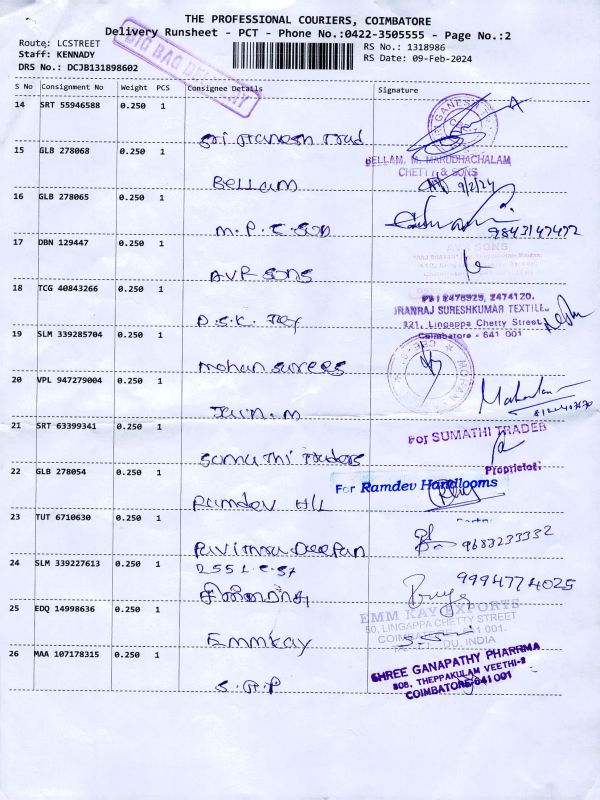 THE PROFESSIONAL COURIERS, COIMBATORE
Delivery Runsheet - PCT - Phone No.:0422-3505555 - Page No.:2
Route: LCSTREET
RS No.: 1318986
Staff: KENNADY
RS Date: 09-Feb-2024
DRS No.: DCJB131898602
BIG BAG DELIVERY
S No Consignment No Weight PCS Consignee Details Signature
14 SRT 55946588 0.250 1
Sri Ganesh Trad
15 GLB 278068 0.250 1
BELLAM. M. MARUDHACHALAM
CHETTY & SONS
Bellam
9/2/24
16 GLB 278065 0.250 1
M.P.C.Son
9843147472
17 DBN 129447 0.250 1
A.V.R SONS
A.V.R Sons
18 TCG 40843266 0.250 1
PH: 2476925, 2474120.
JRANRAJ SURESHKUMAR TEXTILE
121, Lingappa Chetty Street,
Coimbatore - 641 001
D.S.K. Tex
19 SLM 339285704 0.250 1
MOHAN
Mohan surees
20 VPL 947279004 0.250 1
21 SRT 63399341 0.250 1
For SUMATHI TRADER
Proprietor
Sumathi Traders
22 GLB 278054 0.250 1
For Ramdev Handlooms
Ramdev H/L
23 TUT 6710630 0.250 1
9683233332
Pavithra Deepan
24 SLM 339227613 0.250 1
255 L.C.St
9994774025
25 EDQ 14998636 0.250 1
EMM KAY EXPORTS
50, LINGAPPA CHETTY STREET
COIMBATORE - 641 001.
INDIA
Emmkay
26 MAA 107178315 0.250 1
SHREE GANAPATHY PHARRMA
508, THEPPAKULAM VEETHI-2
COIMBATORE-641 001
S.G.P